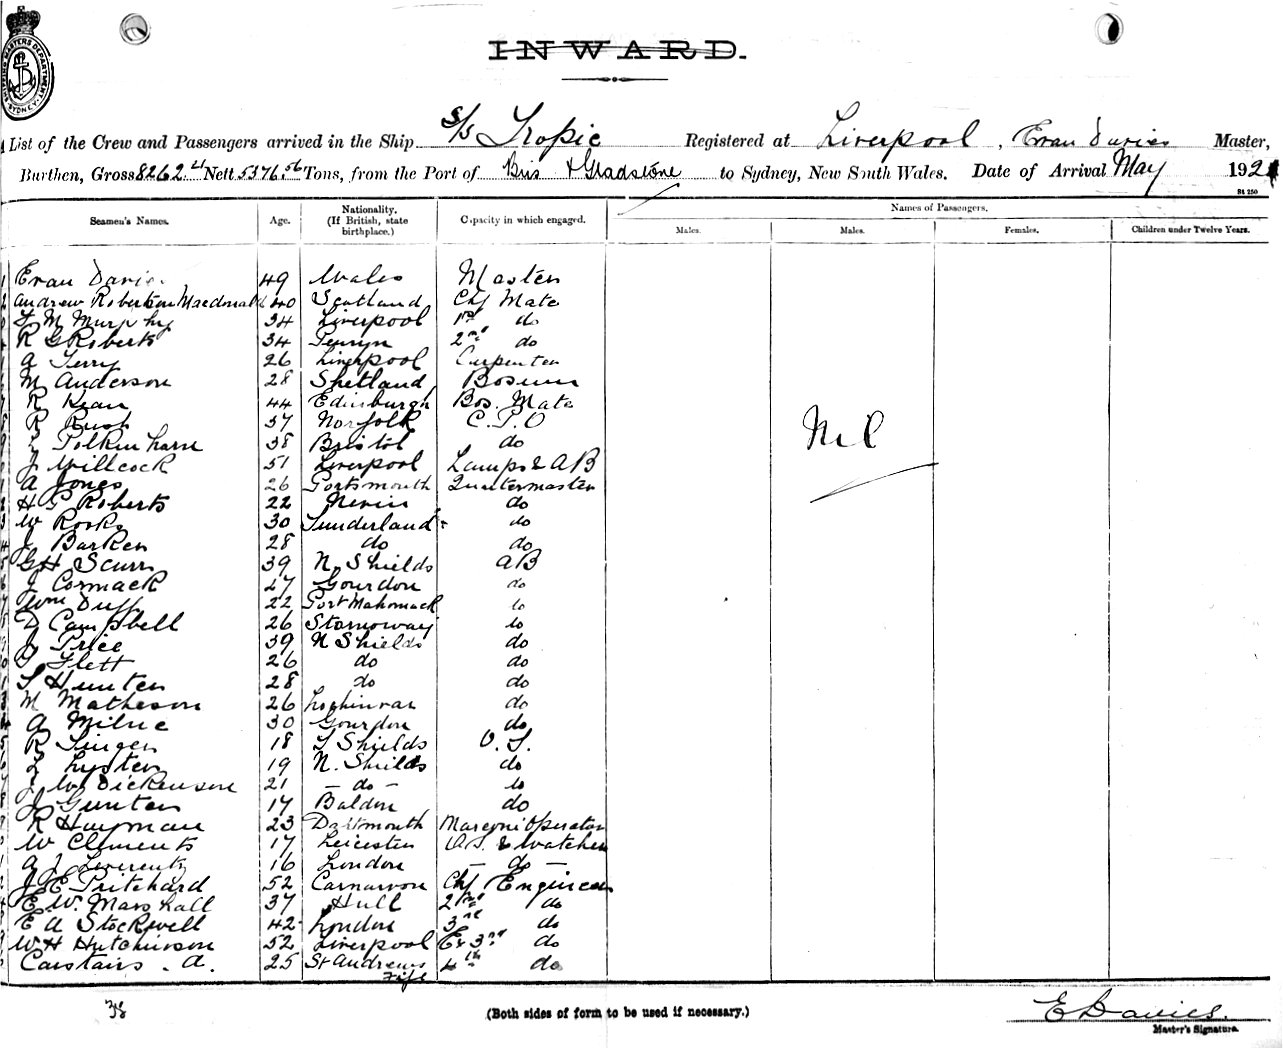 SHIPPING MASTERS DEPARTMENT SYDNEY
INWARD.
List of the Crew and Passengers arrived in the Ship S/S Tropic Registered at Liverpool, Evan Davies Master,
Burthen, Gross 8262.11 Nett 5376.56 Tons, from the Port of Bris & Gladstone to Sydney, New South Wales. Date of Arrival May 192
St 250
Seamen's Names. Age. Nationality. (If British, state birthplace.) Capacity in which engaged. Names of Passengers.
Males. Males. Females. Children under Twelve Years.
Evan Davies 49 Wales Master
Andrew Robertson Macdonald 40 Scotland Chf Mate
F M Murphy 34 Liverpool 1st do
R G Roberts 34 Penryn 2nd do
A Terry 26 Liverpool Carpenter
M Anderson 28 Shetland Bosun
R Kean 44 Edinburgh Bos. Mate
R Rust 37 Norfolk C.P.O
Polkinharn 38 Bristol do
J Willcock 51 Liverpool Lamps & AB
A Jones 26 Portsmouth Quartermaster
H G Roberts 22 Nevin do
W Rooks 30 Sunderland do
J Barker 28 do do
G H Scurr 39 N Shields AB
J Cormack 27 Gourdon do
Wm Duff 22 Port Mahomack do
D Campbell 26 Stornoway do
J Price 39 N Shields do
Flett 26 do do
S Hunter 28 do do
M Matheson 26 Lochinvar do
A Milne 30 Gourdon do
R Singer 18 S Shields O.S.
L Lyster 19 N. Shields do
J W Dickenson 21 - do - do
J Gunter 17 Baldon do
R Hayman 23 Dartmouth Marconi Operator
W Clements 17 Leicester O.S. & Watcher
A J Leverentz 16 London - do -
J E Pritchard 52 Carnarvon Chf Engineer
E. W. Marshall 37 Hull 2nd do
E A Stockwell 42 London 3rd do
W H Hutchinson 52 Liverpool Ex 3rd do
Carstairs . A. 25 St Andrews Fife 4th do
Nil
38
(Both sides of form to be used if necessary.)
E Davies.
Master's Signature.